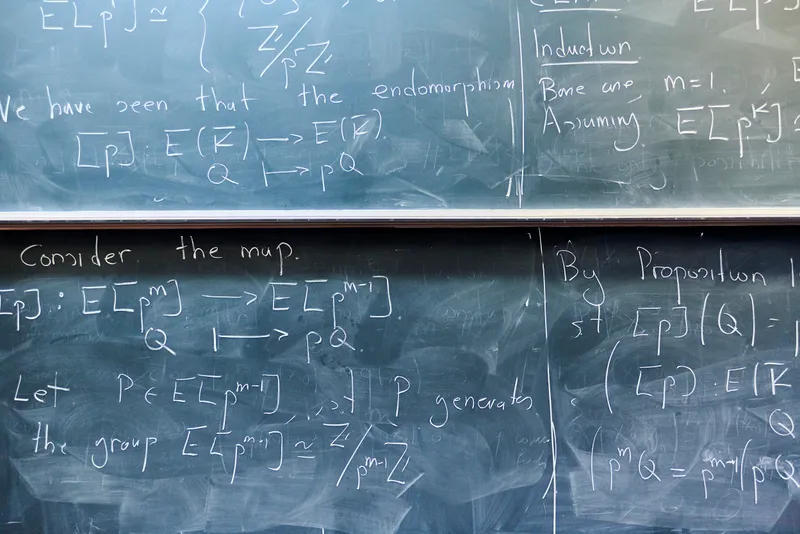 E[p^r] ≃ { {0},
ℤ/p^rℤ
We have seen that the endomorphism
[p] : E(K̄) → E(K̄).
Q ↦ pQ
Induction
Base case m=1.
Assuming E[p^k] ≃
Consider the map.
[p] : E[p^m] → E[p^{m-1}].
Q ↦ pQ.
Let P ∈ E[p^{m-1}] P generates
the group E[p^{m-1}] ≃ ℤ/p^{m-1}ℤ
By Proposition 1
st [p](Q) =
( [p] : E(K̄
Q
(p^m Q = p^{m-1}(pQ